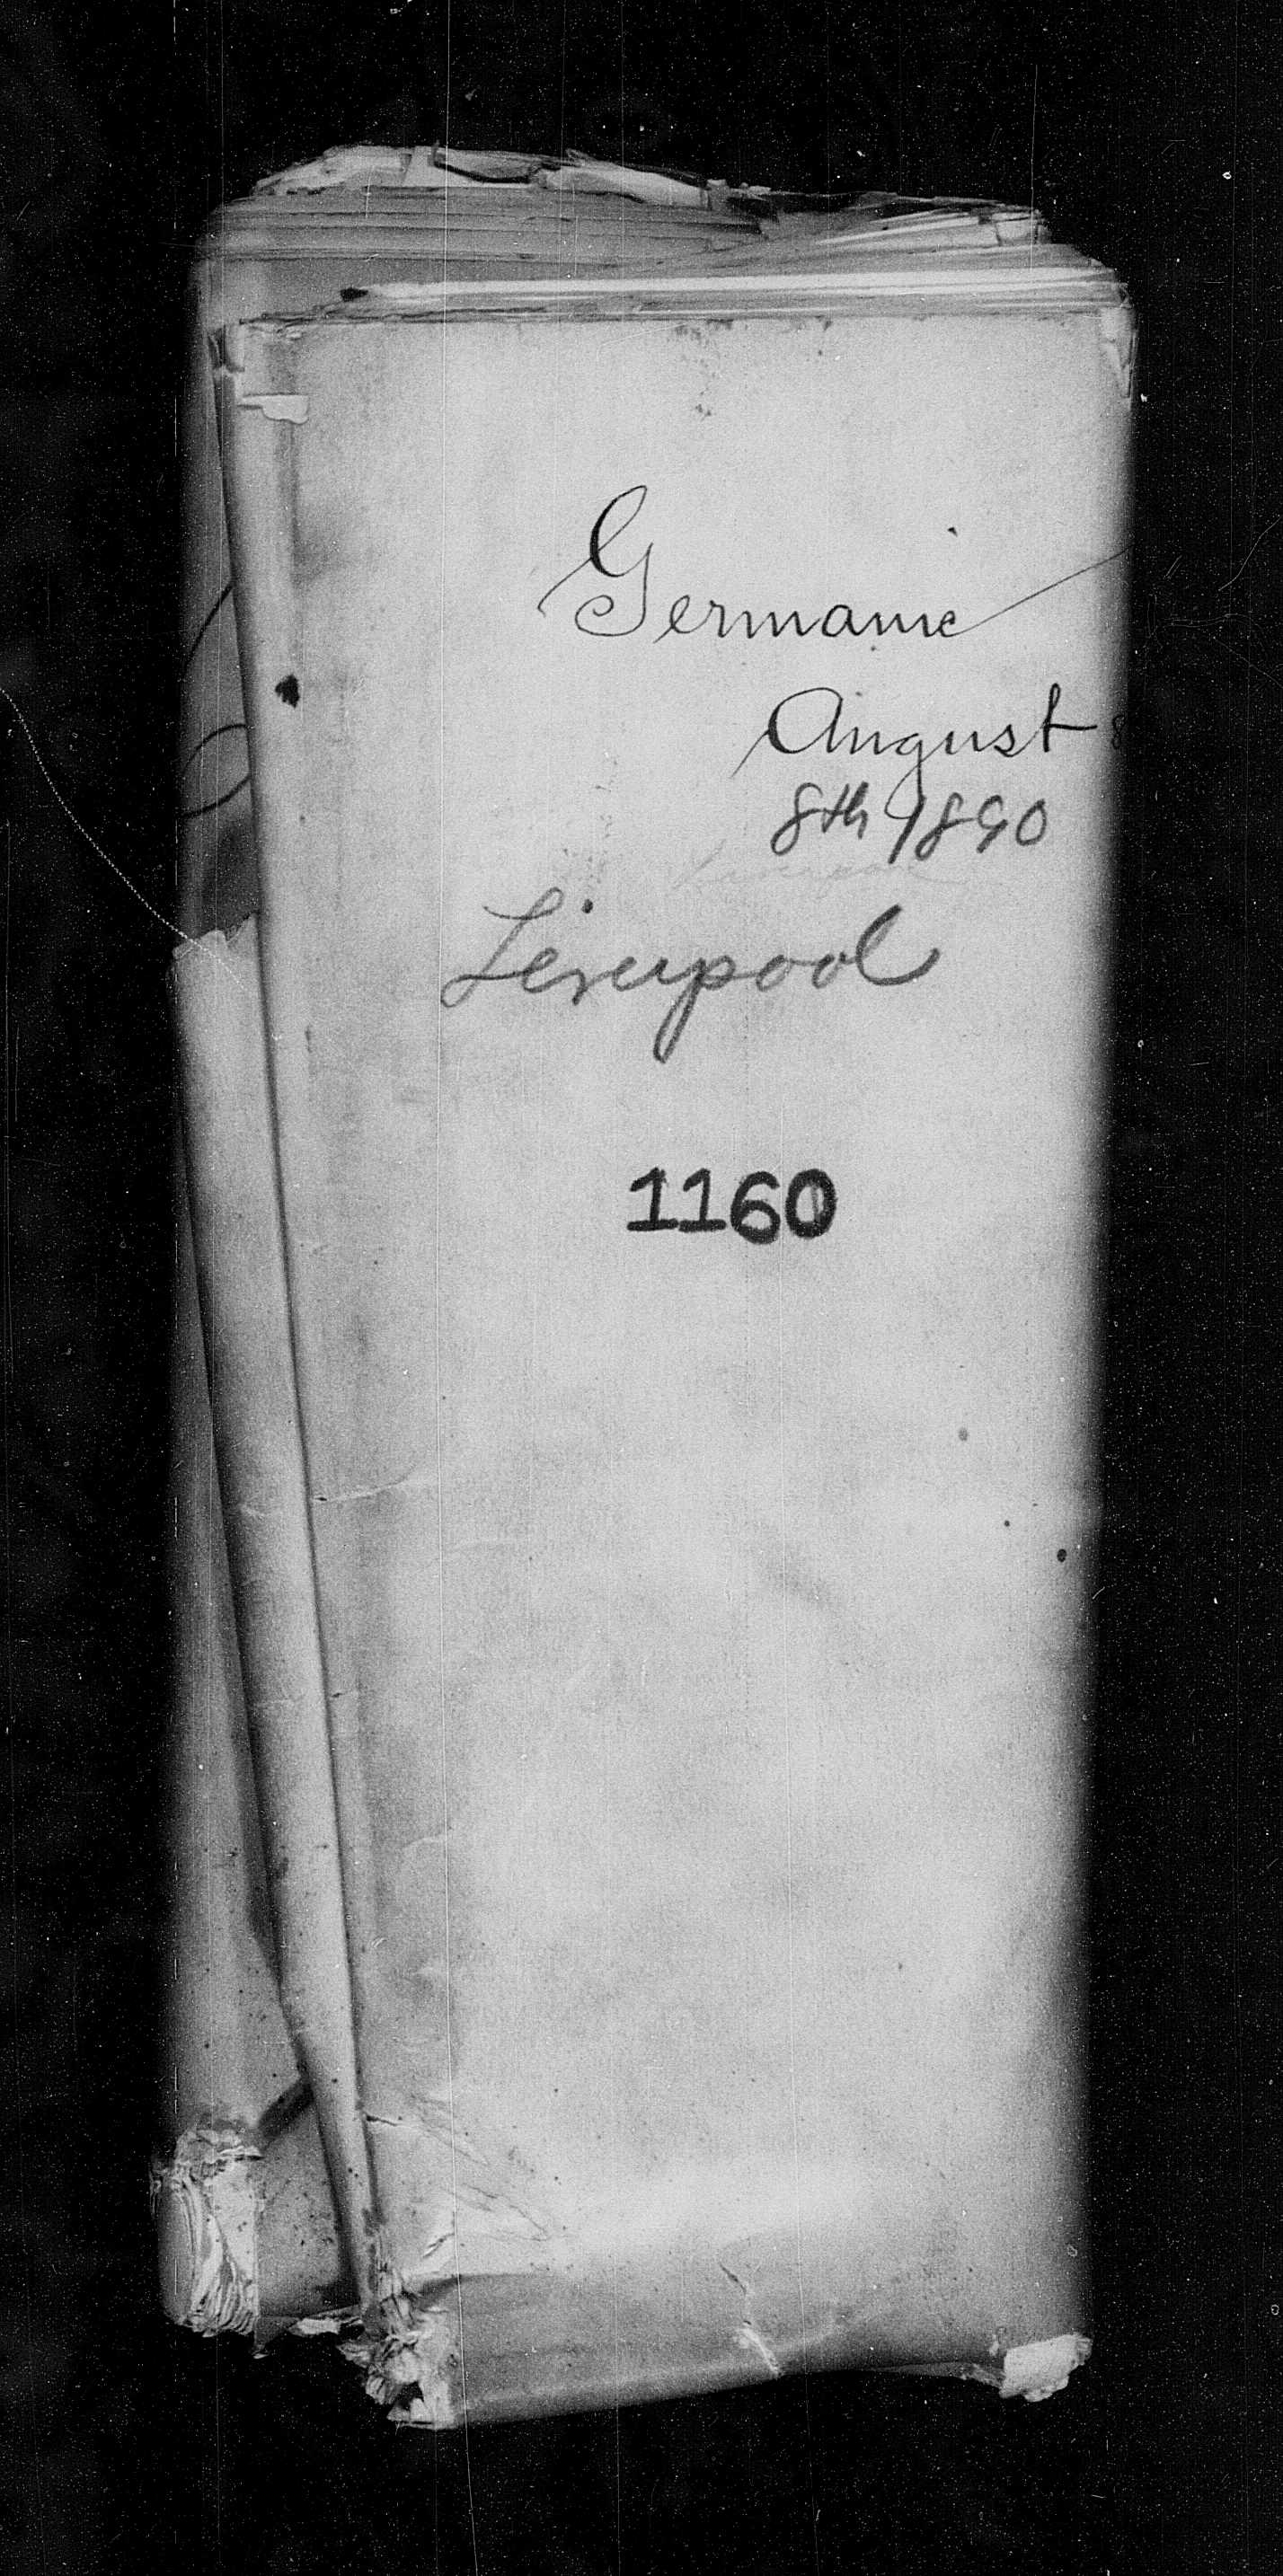 Germanic
August 8
8th 1890
Liverpool
1160